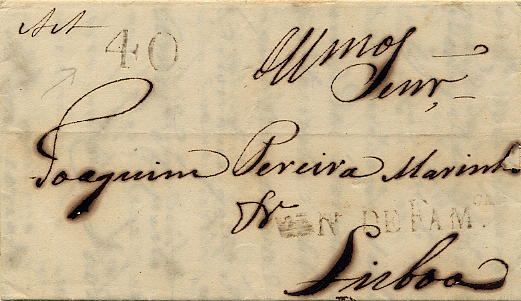 40
Illmos
Senr,
Joaquim Pereira Marinho
Va N. DE FAM.
Lisboa